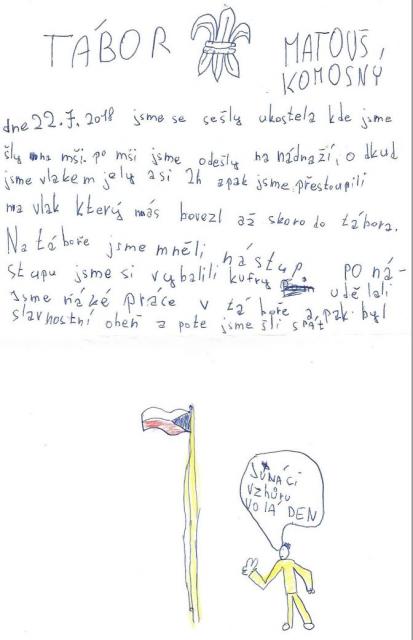 TÁBOR
MATOUŠ,
KOMOSNÝ
dne 22.7.2018 jsme se sešly ukostela kde jsme
šly na mši. po mši jsme odešly na nádraží, o dkud
jsme vlakem jely asi 2h apak jsme přestoupili
na vlak který nás dovezl až skoro do tábora.
Na táboře jsme mněli nástup. PO ná-
stupu jsme si vybalili kufry udělali
jsme náké práce v táboře a pak byl
slavnostní oheň a pote jsme šli spát
JUNÁCI
vzhůru
VOLÁ DEN